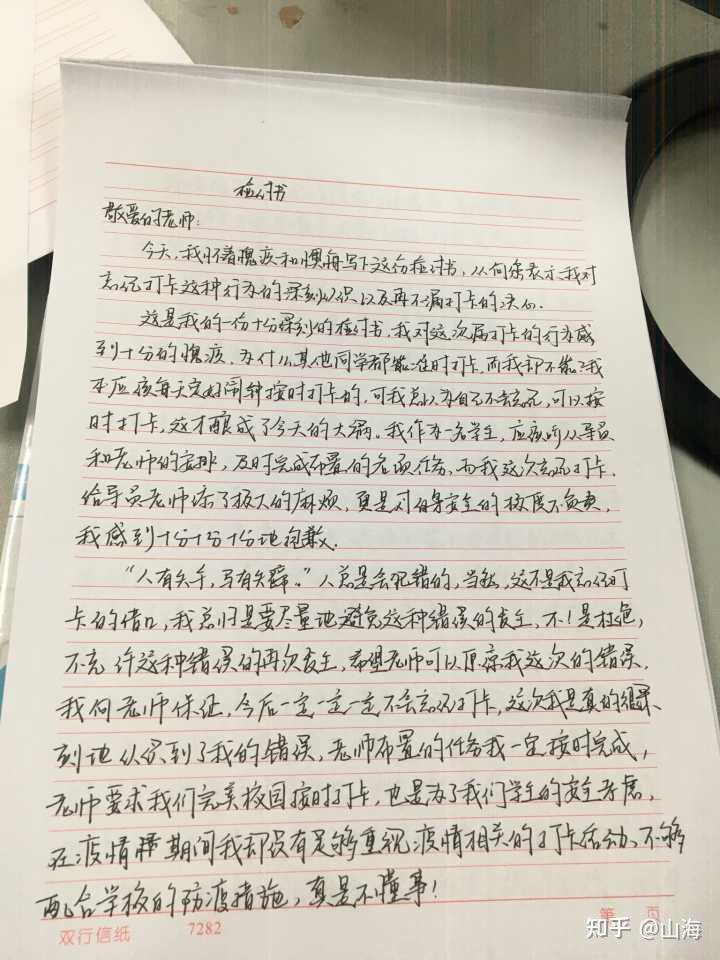 检讨书
敬爱的老师:
今天,我怀着愧疚和懊悔写下这份检讨书,以向您表示我对
忘记打卡这种行为的深刻认识以及再不漏打卡的决心。
这是我的一份十分深刻的检讨书,我对这次漏打卡的行为感
到十分的愧疚,为什么其他同学都能准时打卡,而我却不能?我
本应该每天定好闹钟按时打卡的,可我总以为自己不会忘记,可以按
时打卡,这才酿成了今天的大祸。我作为一名学生,应该听从导员
和老师的安排,及时完成布置的各项任务,而我这次忘记打卡,
给导员老师添了极大的麻烦,更是对自身安全的极度不负责,
我感到十分十分十分地抱歉.
“人有失手,马有失蹄。”人总是会犯错的,当然,这不是我忘记打
卡的借口,我总归是要尽量地避免这种错误的发生,不!是杜绝,
不允许这种错误的再次发生,希望老师可以原谅我这次的错误,
我向老师保证,今后一定一定一定不会忘记打卡,这次我是真的很深
刻地认识到了我的错误,老师布置的任务我一定按时完成,
老师要求我们完美校园按时打卡,也是为了我们学生的安全考虑,
在疫情期间我却没有足够重视疫情相关的打卡活动,不够
配合学校的防疫措施,真是不懂事!
双行信纸 7282 第 页
知乎 @山海